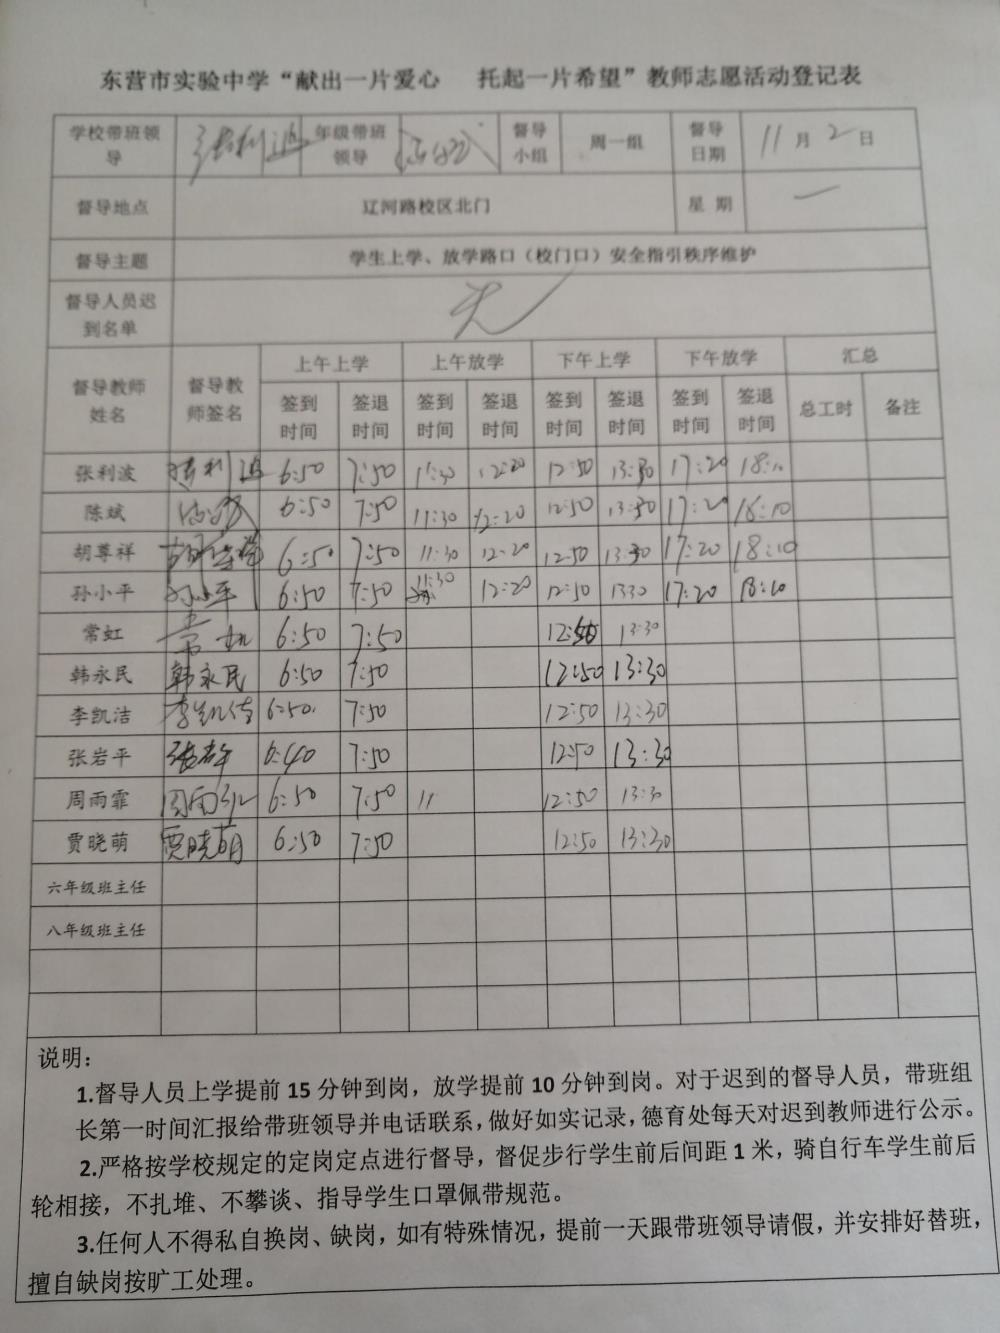 东营市实验中学“献出一片爱心 托起一片希望”教师志愿活动登记表
学校带班领导 张利波 年级带班领导 督导小组 周一组 督导日期 11月2日
督导地点 辽河路校区北门 星 期 一
督导主题 学生上学、放学路口（校门口）安全指引秩序维护
督导人员迟到名单 无
督导教师姓名 督导教师签名 上午上学 上午放学 下午上学 下午放学 汇总
签到时间 签退时间 签到时间 签退时间 签到时间 签退时间 签到时间 签退时间 总工时 备注
张利波 张利波 6:50 7:50 11:30 12:20 12:50 13:30 17:20 18:10
陈斌 6:50 7:50 11:30 12:20 12:50 13:30 17:20 18:10
胡尊祥 胡尊祥 6:50 7:50 11:30 12:20 12:50 13:30 17:20 18:10
孙小平 孙小平 6:50 7:50 11:30 12:20 12:50 13:30 17:20 18:10
常虹 常虹 6:50 7:50 12:50 13:30
韩永民 韩永民 6:50 7:50 12:50 13:30
李凯洁 李凯洁 6:50 7:50 12:50 13:30
张岩平 张岩平 6:40 7:50 12:50 13:30
周雨霏 周雨霏 6:50 7:50 11 12:50 13:30
贾晓萌 贾晓萌 6:50 7:50 12:50 13:30
六年级班主任
八年级班主任
说明：
1.督导人员上学提前 15 分钟到岗，放学提前 10 分钟到岗。对于迟到的督导人员，带班组
长第一时间汇报给带班领导并电话联系，做好如实记录，德育处每天对迟到教师进行公示。
2.严格按学校规定的定岗定点进行督导，督促步行学生前后间距 1 米，骑自行车学生前后
轮相接，不扎堆、不攀谈、指导学生口罩佩带规范。
3.任何人不得私自换岗、缺岗，如有特殊情况，提前一天跟带班领导请假，并安排好替班，
擅自缺岗按旷工处理。